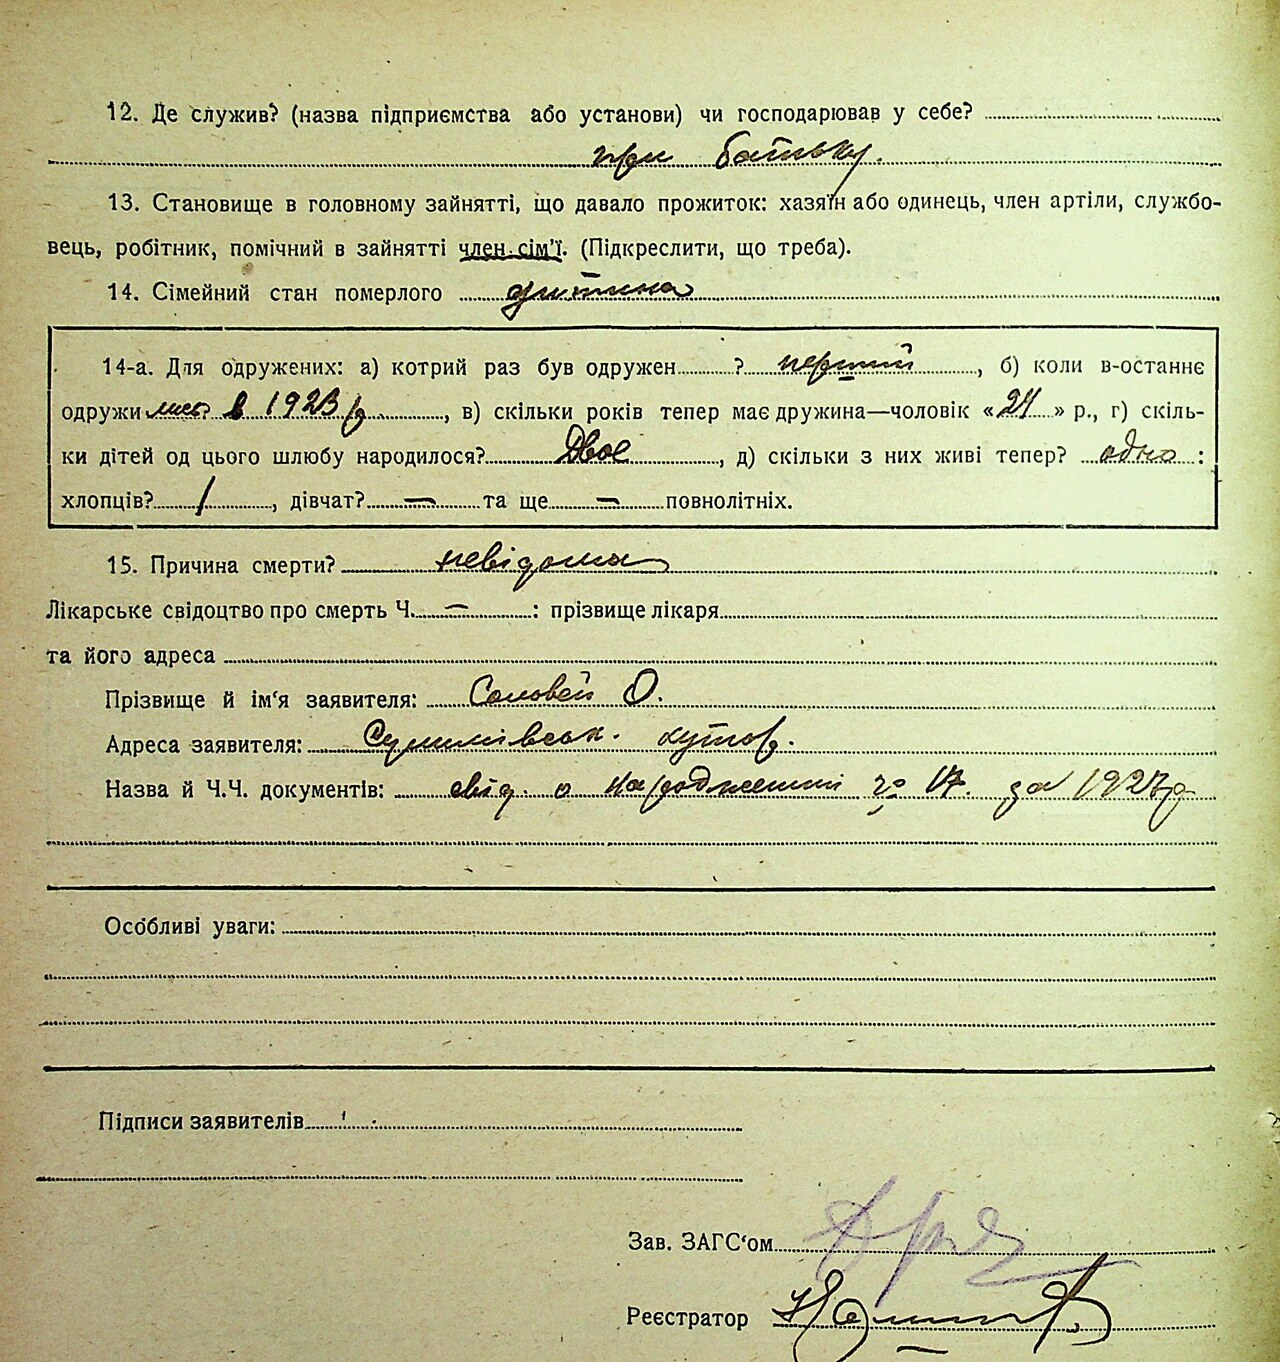 12. Де служив? (назва підприємства або установи) чи господарював у себе?
при батьку.
13. Становище в головному зайнятті, що давало прожиток: хазяїн або одинець, член артіли, службо-
вець, робітник, помічний в зайнятті член сім'ї. (Підкреслити, що треба).
14. Сімейний стан померлого дитина
14-а. Для одружених: а) котрий раз був одружен ? перший, б) коли в-останнє
одружились? в 1923 р., в) скільки років тепер має дружина—чоловік «24» р., г) скіль-
ки дітей од цього шлюбу народилося? Двое, д) скільки з них живі тепер? одно :
хлопців? 1, дівчат? — та ще — повнолітніх.
15. Причина смерти? невідома
Лікарське свідоцтво про смерть Ч. — : прізвище лікаря
та його адреса
Прізвище й ім'я заявителя: Соловей О.
Адреса заявителя: хутор.
Назва й Ч.Ч. документів: свід. о народженні за 1927 р
Особливі уваги:
Підписи заявителів
Зав. ЗАГС'ом
Реєстратор